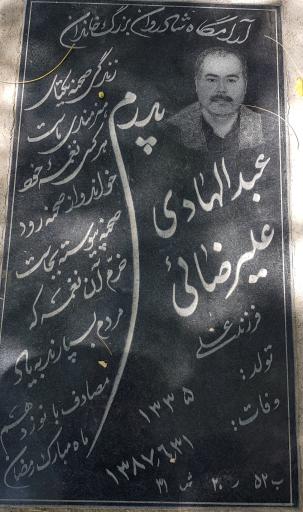 آرامگاه شادروان بزرگ خاندان
پدرم
عبدالهادی
علیرضائی
فرزند علی
تولد: ۱۳۳۵
وفات: ۱۳۸۷/۶/۳۱
زندگی صحنه یکتای
هنرمندی ماست
هر کسی نغمه خود
خواند و از صحنه رود
صحنه پیوسته بجاست
خرم آن نغمه که
مردم بسپارند به یاد
مصادف با نوزدهم
ماه مبارک رمضان
ب ۵۲ ر ۲۰ ش ۳۱